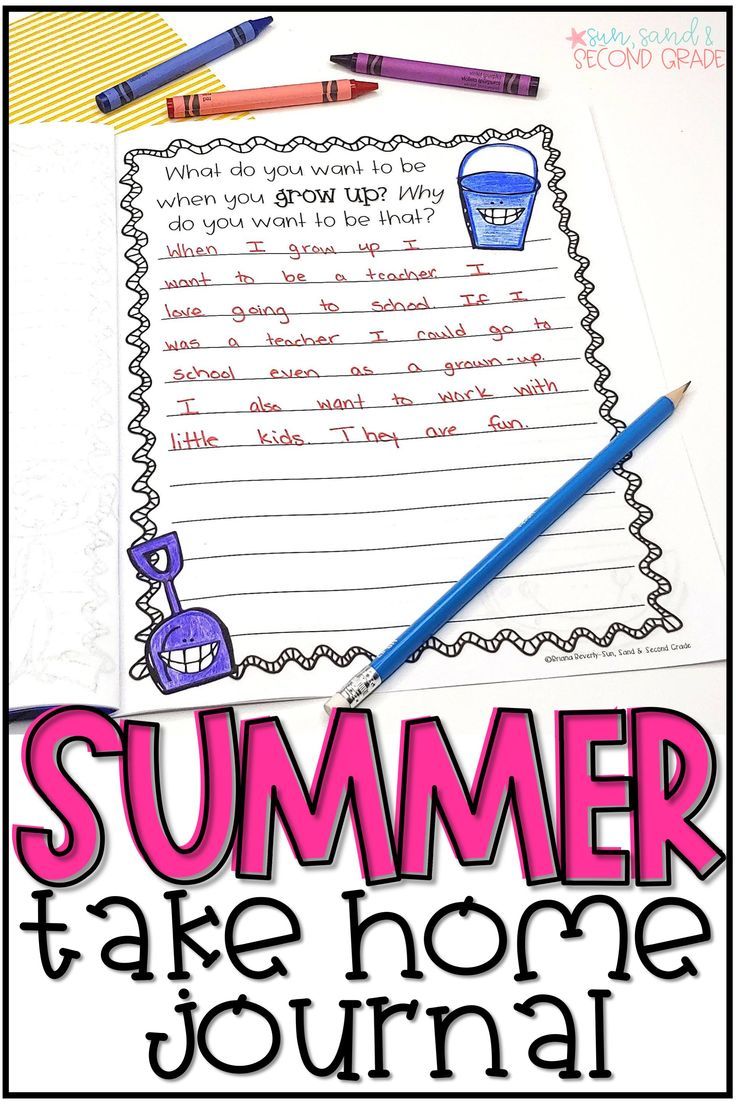 sun, sand &
SECOND GRADE
What do you want to be
when you grow up? Why
do you want to be that?
When I grow up I
want to be a teacher. I
love going to school. If I
was a teacher I could go to
school even as a grown-up.
I also want to work with
little kids. They are fun.
©Briana Beverly-Sun, Sand & Second Grade
SUMMER
take home
journal